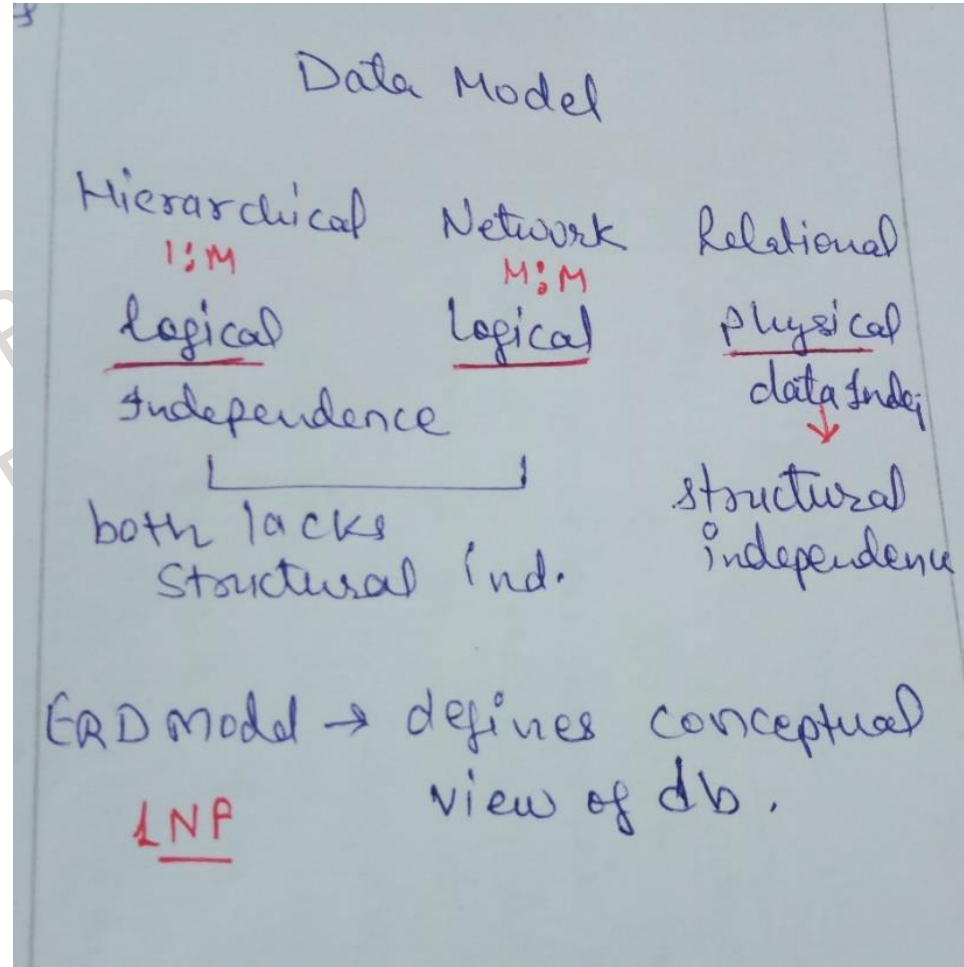 Data Model
Hierarchical Network Relational
1:M M:M
Logical Logical Physical
Independence data Inde;
both lacks structural
Structural ind. independence
ERD Model → defines conceptual
view of db.
LNP